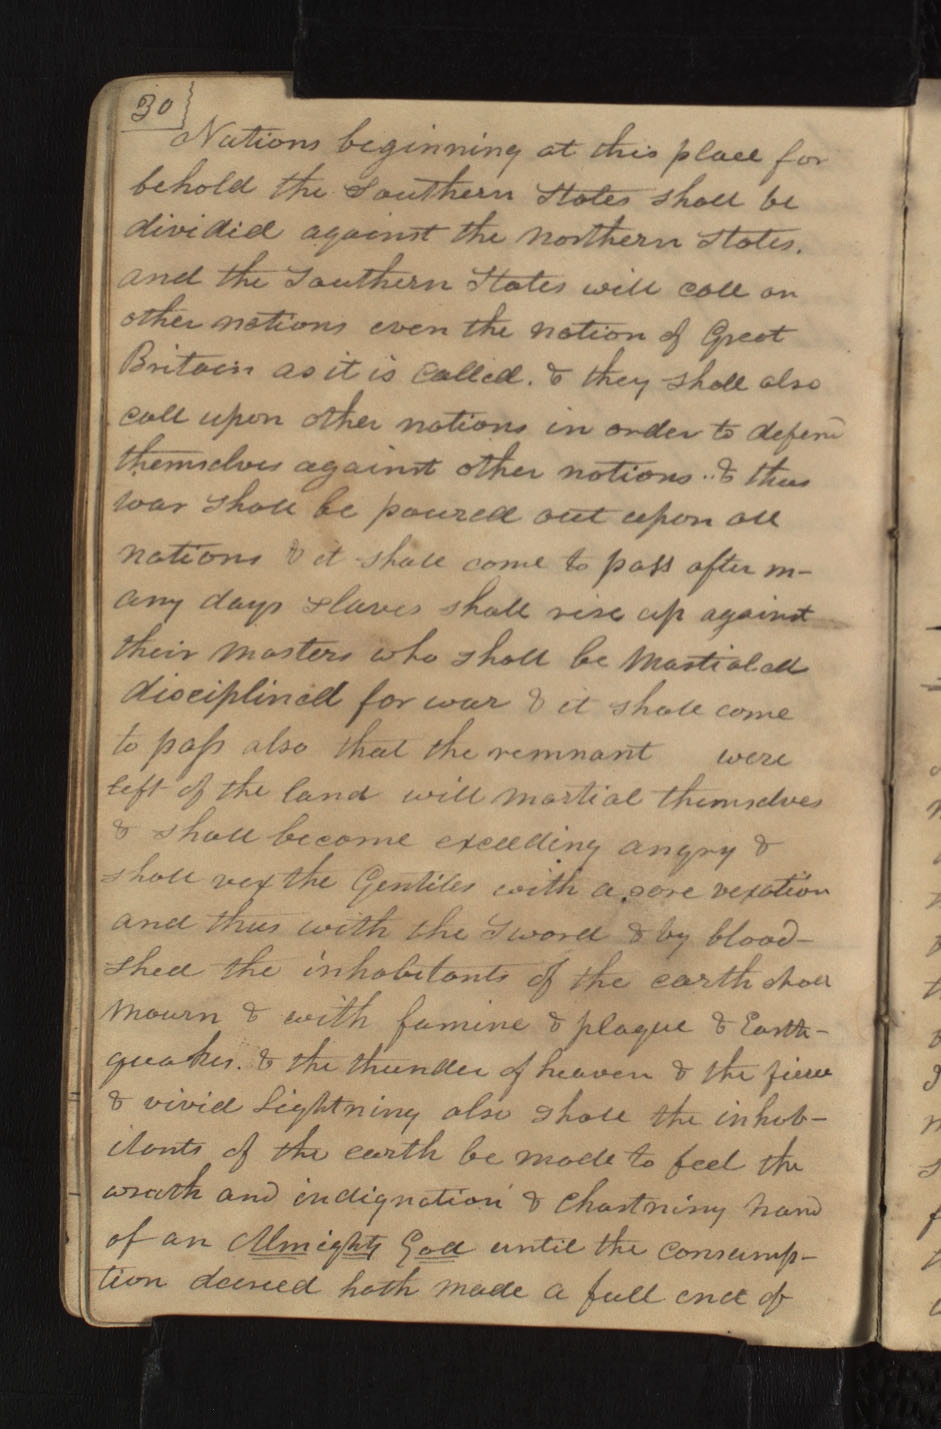 30
Nations beginning at this place for
behold the Southern States shall be
divided against the Northern States.
and the Southern States will call on
other nations even the nation of Great
Britain as it is called. & they shall also
call upon other nations in order to defend
themselves against other nations.. & thus
war shall be poured out upon all
nations & it shall come to pass after m-
any days slaves shall rise up against
their masters who shall be Martialed
disciplined for war & it shall come
to pass also that the remnant were
left of the land will martial themselves
& shall become exceeding angry &
shall vex the Gentiles with a sore vexation
and thus with the Sword & by blood-
shed the inhabitants of the earth shall
mourn & with famine & plague & Earth-
quakes. & the thunder of heaven & the fierce
& vivid Lightning also shall the inhab-
itants of the earth be made to feel the
wrath and indignation & Chastning hand
of an Almighty God until the consump-
tion decreed hath made a full end of